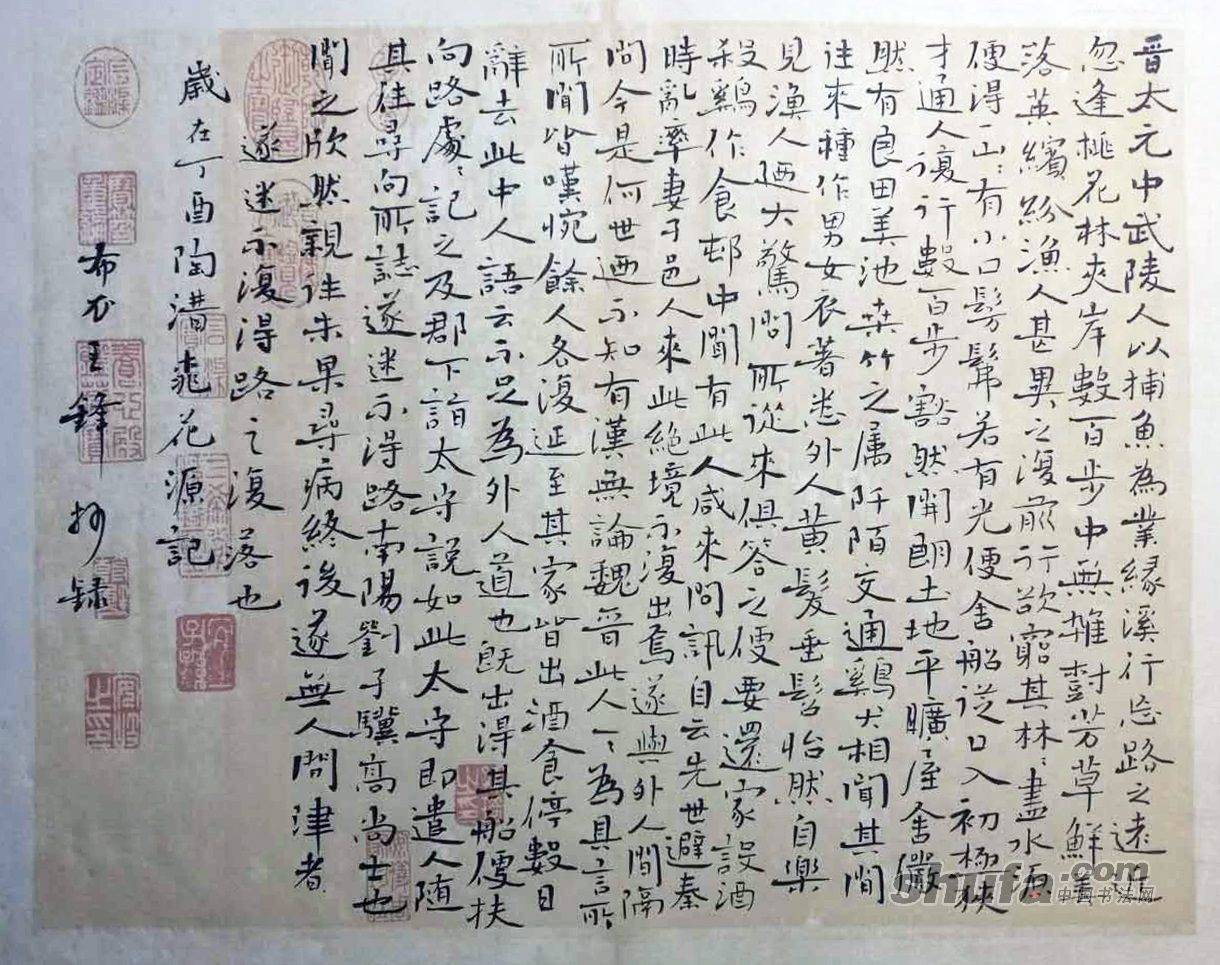 晋太元中武陵人以捕魚為業緣溪行忘路之遠近
忽逢桃花林夾岸數百步中無雜樹芳草鮮美
落英繽紛漁人甚異之復前行欲窮其林〻盡水源
便得一山〻有小口髣髴若有光便舍船從口入初極狹
才通人復行數百步豁然開朗土地平曠屋舍儼
然有良田美池桑竹之属阡陌交通鷄犬相聞其間
往來種作男女衣著悉外人黄髮垂髫怡然自樂
見漁人廼大驚問所從來俱答之便要還家設酒
殺鷄作食邨中聞有此人咸來問訊自云先世避秦
時亂率妻子邑人來此絕境不復出焉遂與外人間隔
問今是何世廼不知有漢無論魏晉此人一〻為具言所
所聞皆嘆惋餘人各復延至其家皆出酒食停數日
辭去此中人語云不足為外人道也既出得其船便扶
向路處〻記之及郡下詣太守説如此太守即遣人随
其往尋向所誌遂迷不得路南陽劉子驥高尚士也
聞之欣然親往未果尋病終後遂無人問津者
遂迷不復得路之復落也
歲在丁酉陶潛桃花源記
布衣王鋒抄録
shufa.com
中国书法网